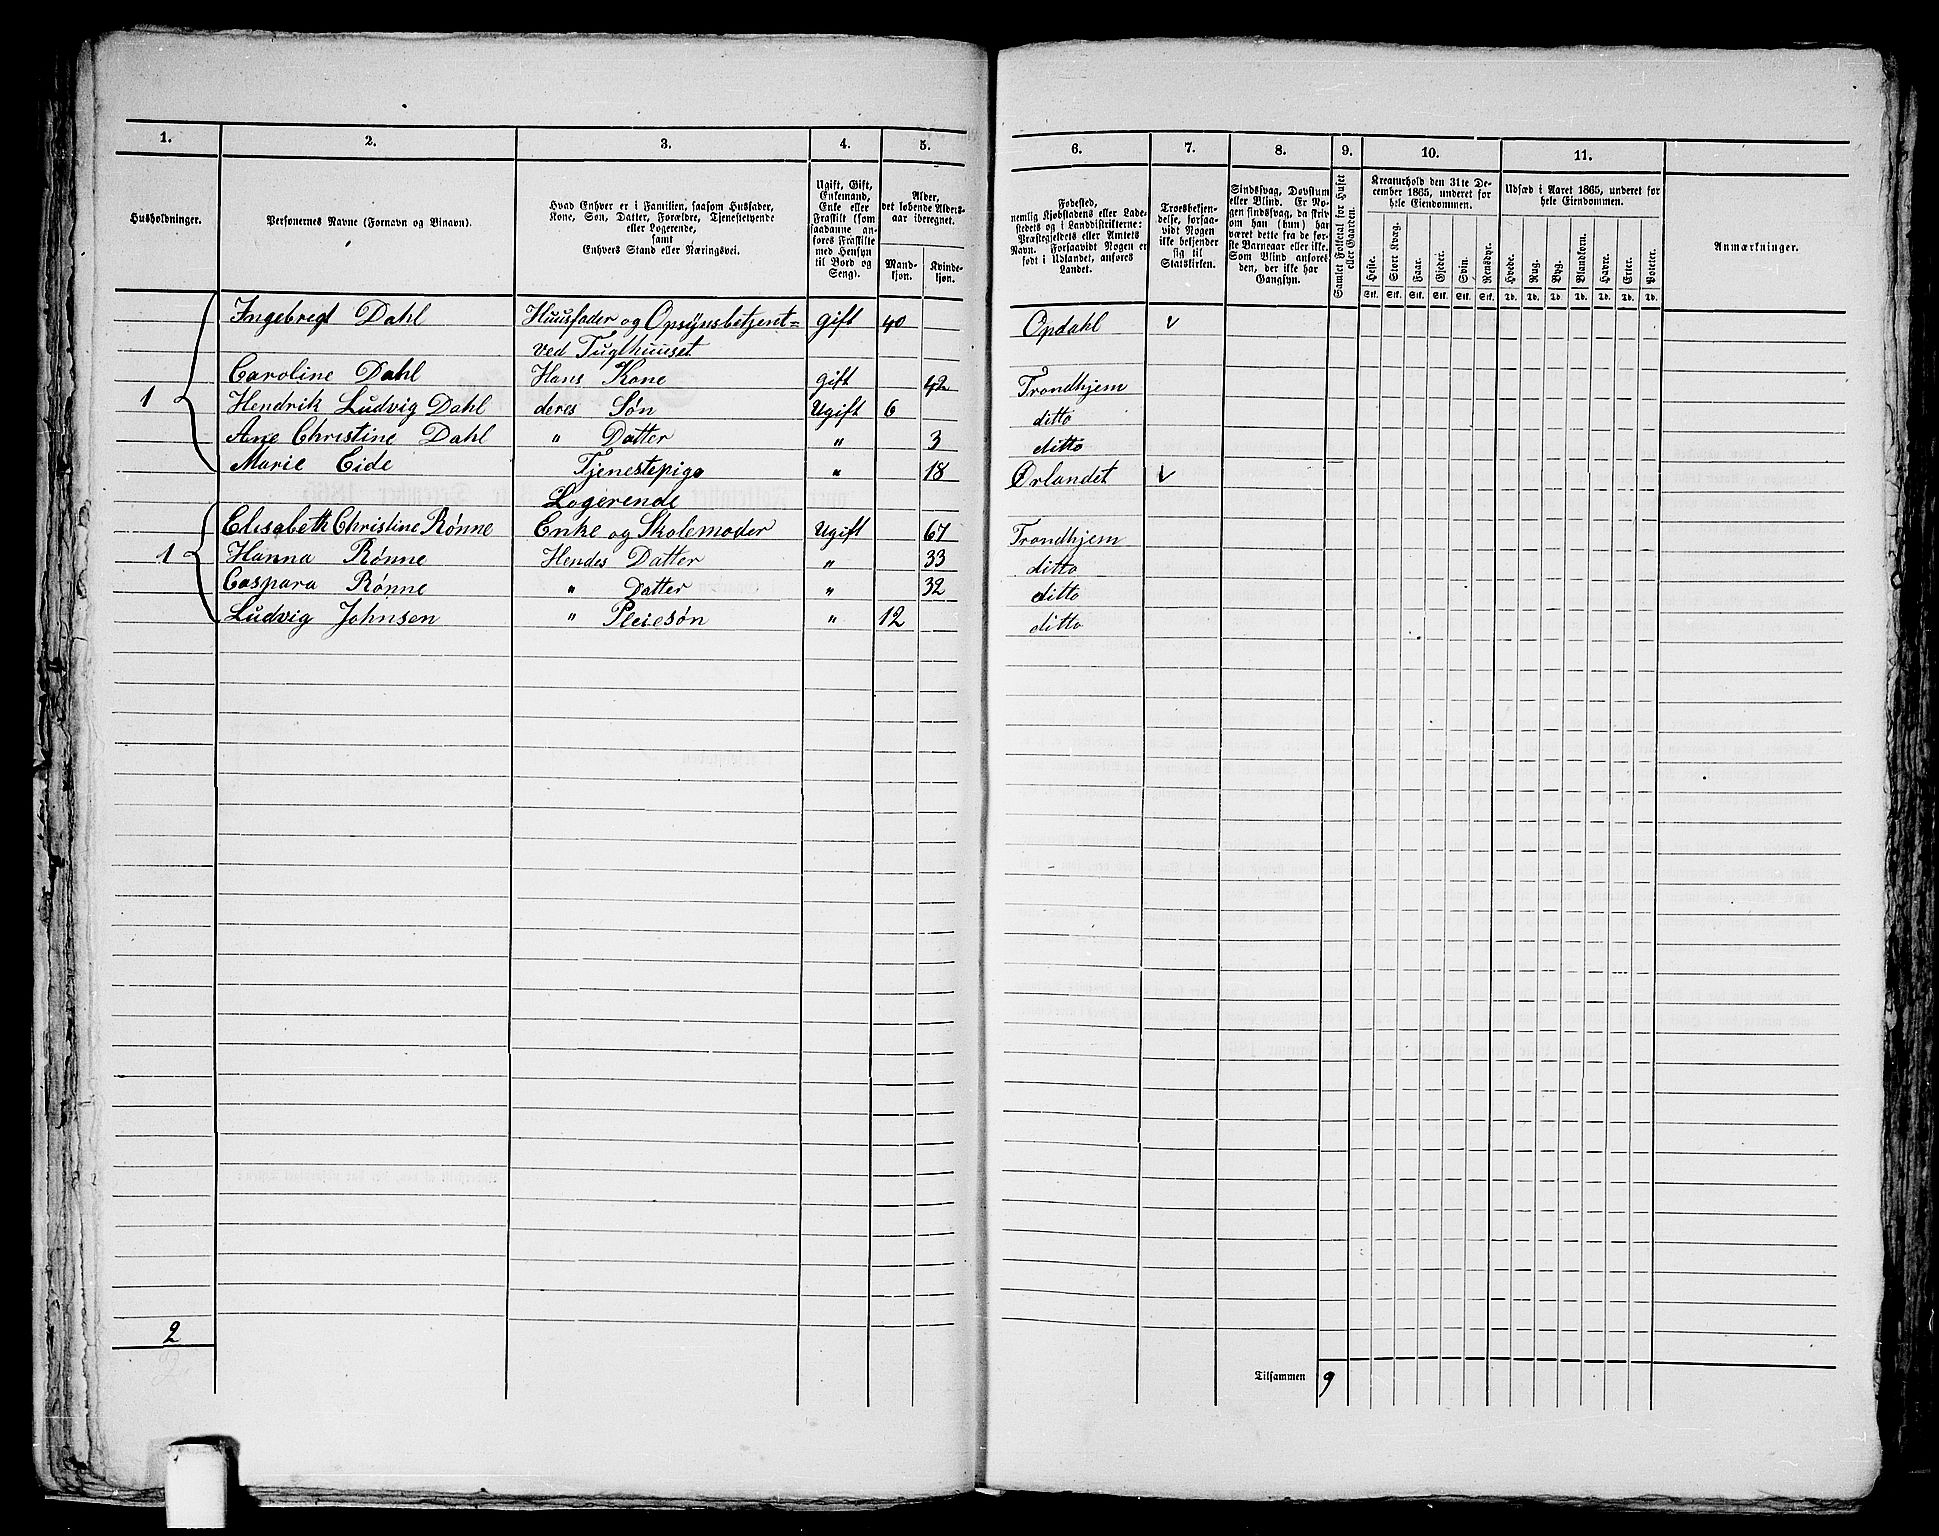 1. 2. 3. 4. 5. 6. 7. 8. 9. 10. 11.
Husholdninger.
Personernes Navne (Fornavn og Binavn).
Hvad Enhver er i Familien, saasom Husfader,
Kone, Søn, Datter, Forældre, Tjenestetyende
eller Logerende,
samt
Enhvers Stand eller Næringsvei.
Ugift, Gift,
Enkemand,
Enke eller
Fraskilt (som
saadanne an-
føres Fraskilte
med Hensyn
til Bord og
Seng).
Alder,
det løbende Alders-
aar iberegnet.
Mand-
kjøn.
Kvinde-
kjøn.
Fødested,
nemlig Kjøbstadens eller Lade-
stedets og i Landdistrikterne:
Præstegjeldets eller Amtets
Navn. Forsaavidt Nogen er
født i Udlandet, anføres
Landet.
Troesbekjen-
delse, forsaa-
vidt Nogen
ikke bekjender
sig til
Statskirken.
Sindssvag, Døvstum
eller Blind. Er No-
gen sindssvag, da skriv
om han (hun) har
været dette fra de før-
ste Barneaar eller ikke.
Som Blind anføres
den, der ikke har
Gangsyn.
Samlet Folketal for Huset
eller Gaarden.
Kreaturhold den 31te De-
cember 1865, underet for
hele Eiendommen.
Heste. Stort Kvæg. Faar. Gjeder. Svin. Rensdyr.
Stk. Stk. Stk. Stk. Stk. Stk.
Udsæd i Aaret 1865, underet for
hele Eiendommen.
Hvede. Rug. Byg. Blandkorn. Havre. Erter. Poteter.
Td. Td. Td. Td. Td. Td. Td.
Anmærkninger.
Ingebregt Dahl Huusfader og Opsynsbetjent= gift 40 Opdahl v
ved Tugthuuset
Caroline Dahl Hans Kone gift 42 Trondhjem
1 Hendrik Ludvig Dahl deres Søn Ugift 6 ditto
Ane Christine Dahl " Datter " 3 ditto
Marie Eide Tjenestepige " 18 Ørlandet v
Logerende
Elisabeth Christine Rønne Enke og Skolemoder Ugift 67 Trondhjem
1 Hanna Rønne Hendes Datter " 33 ditto
Caspara Rønne " Datter " 32 ditto
Ludvig Johnsen " Pleiesøn " 12 ditto
2
2
Tilsammen 9